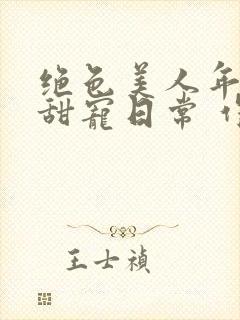 绝色美人年
甜宠日常
王士禎